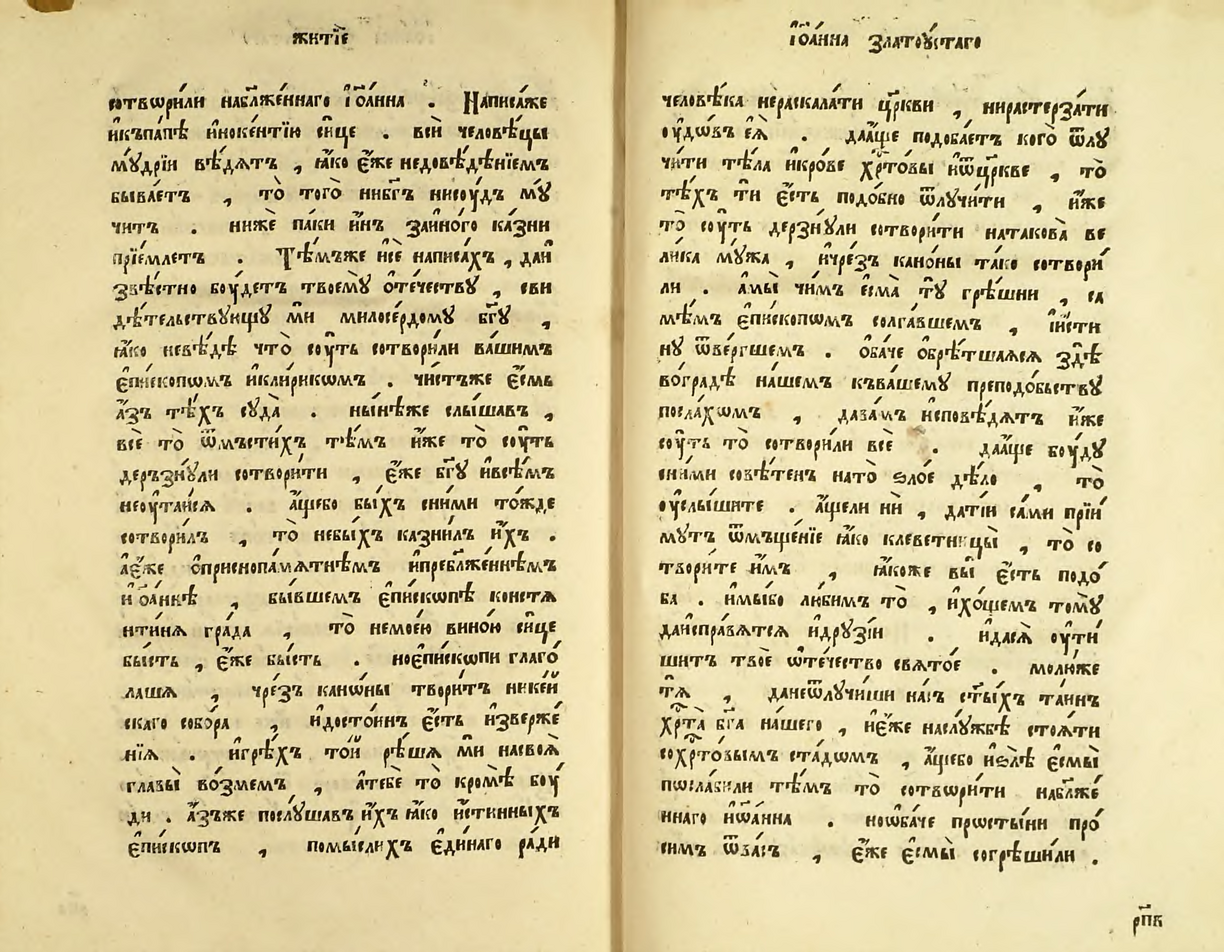 житїе
сотвѡри́ли наблже́ннаго їѡа́нна . Написа́же
икъпа́пѣ иноке́нтїю си́це . вси́ человѣ́цы
мꙋ́дрїи вѣ́дѧтъ , ꙗ҆́ко є҆́же недовѣ́дѣнїемъ
быва́етъ , то̀ того̀ нибг҃ъ нисоу́дъ мꙋ́
читъ . нижѐ па́ки и҆́нъ заино́го ка́зни
прїе́млетъ . Тѣ́мъже исѐ написа́хъ , даи
звѣ́стно боу́детъ твоемꙋ̀ ѻте́чествꙋ , сви
дѣ́тельствꙋющꙋ мѝ милосе́рдомꙋ бг҃ꙋ ,
ꙗ҆́ко невѣ́дѣ что̀ соу́ть сотвори́ли ва́шимъ
є҆пи́скопѡмъ икли́рикѡмъ . чи́стъже є҆́смь
а҆́зъ тѣ́хъ сꙋда̀ . нынѣ́же слы́шавъ ,
всѐ то̀ ѿмъсти́хъ тѣ́мъ и҆́же то̀ соу́ть
деръзнꙋ́ли сотвори́ти , є҆́же бг҃ꙋ ивсѣ́мъ
неоутаи́сѧ . а҆́щебо бы́хъ сни́ми то́жде
сотвори́лъ , то̀ небы́хъ казни́лъ и҆́хъ .
ає҆́же ѻприснопа́мѧтнѣмъ ипребл҃же́ннѣмъ
иѻа́ннѣ , бы́вшемъ є҆пи́скѡпѣ констѧ
нти́нѧ гра́да , то̀ немое́ю вино́ю си́це
бы́сть , є҆́же бы́сть . ноє҆пи́скѡпи глаго́
лашѧ , чре́зъ канѡ́ны твори́тъ нике́и
скаго собо́ра , идосто́инъ є҆́сть изверже́
нїѧ . игрѣ́хъ то́й рѣ́шѧ мѝ насвоѧ̀
главы̀ во́змемъ , атебѐ то̀ кромѣ̀ боу́
ди . а҆́зъже послꙋ́шавъ и҆́хъ ꙗ҆́ко и҆́стинныхъ
є҆пи́скѡпъ , помы́слихъ є҆ди́наго ра́ди
їѻа́нна златоꙋ́стаго
человѣ́ка нераскала́ти цр҃кви , нирастерза́ти
оу҆́дѡвъ є҆ѧ̀ . даа҆́ще подоба́етъ кого̀ ѿлꙋ
чи́ти тѣ́ла икро́ве хр҃то́вы иѿцр҃кве , то̀
тѣ́хъ тѝ є҆́сть подо́бно ѿлꙋчи́ти , и҆́же
то̀ соу́ть дерзнꙋ́ли сотвори́ти натакова̀ ве
ли́ка мꙋ́жа , ичре́зъ кано́ны та́ко сотвори́
ли . амы̀ чи́мъ есма̀ тꙋ̀ грѣ́шни , са
мѣ́мъ є҆пи́скопѡмъ солга́вшемъ , їи́сти
нꙋ ѿве́ргшемъ . ѻба́че ѻбрѣ́тшаѧсѧ здѣ̀
вогра́дѣ на́шемъ къва́шемꙋ преподо́бьствꙋ
посла́хѡмъ , даза́мъ исповѣ́дѧтъ и҆́же
соу́ть то̀ сотвори́ли всѐ . даа҆́ще боу́дꙋ
сни́ми совѣ́тенъ нато̀ ѕло́е дѣ́ло , то̀
оу҆слы́шите . а҆́щели нѝ , дати́и са́ми прїи́
мꙋтъ ѿмще́нїе ꙗ҆́ко клеветницы̀ , то̀ со
твори́те и҆́мъ , ꙗ҆́коже вы̀ є҆́сть подо́
ба . имы́бо лю́бимъ то̀ , ихо́щемъ томꙋ̀
даиспра́вѧтсѧ идрꙋзі́и . идасѧ̀ оути́
шитъ твоѐ ѡте́чество свѧто́е . молю́же
тѧ̀ , данеѿлꙋчи́ши на́съ ст҃ы́хъ та́инъ
хр҃та̀ бг҃а на́шего , иє҆́же наслꙋ́жбѣ стоѧ́ти
сохр҃то́вымъ ста́дѡмъ , а҆́щебо иѕлѣ̀ є҆смы̀
пѡсла́били тѣ́мъ то̀ сотвѡри́ти наблже́
ннаго иѡа́нна . ноѡба́че прѡсты́ни про́
симъ ѿва́съ , є҆́же є҆смы̀ согрѣши́ли .
рп҃в